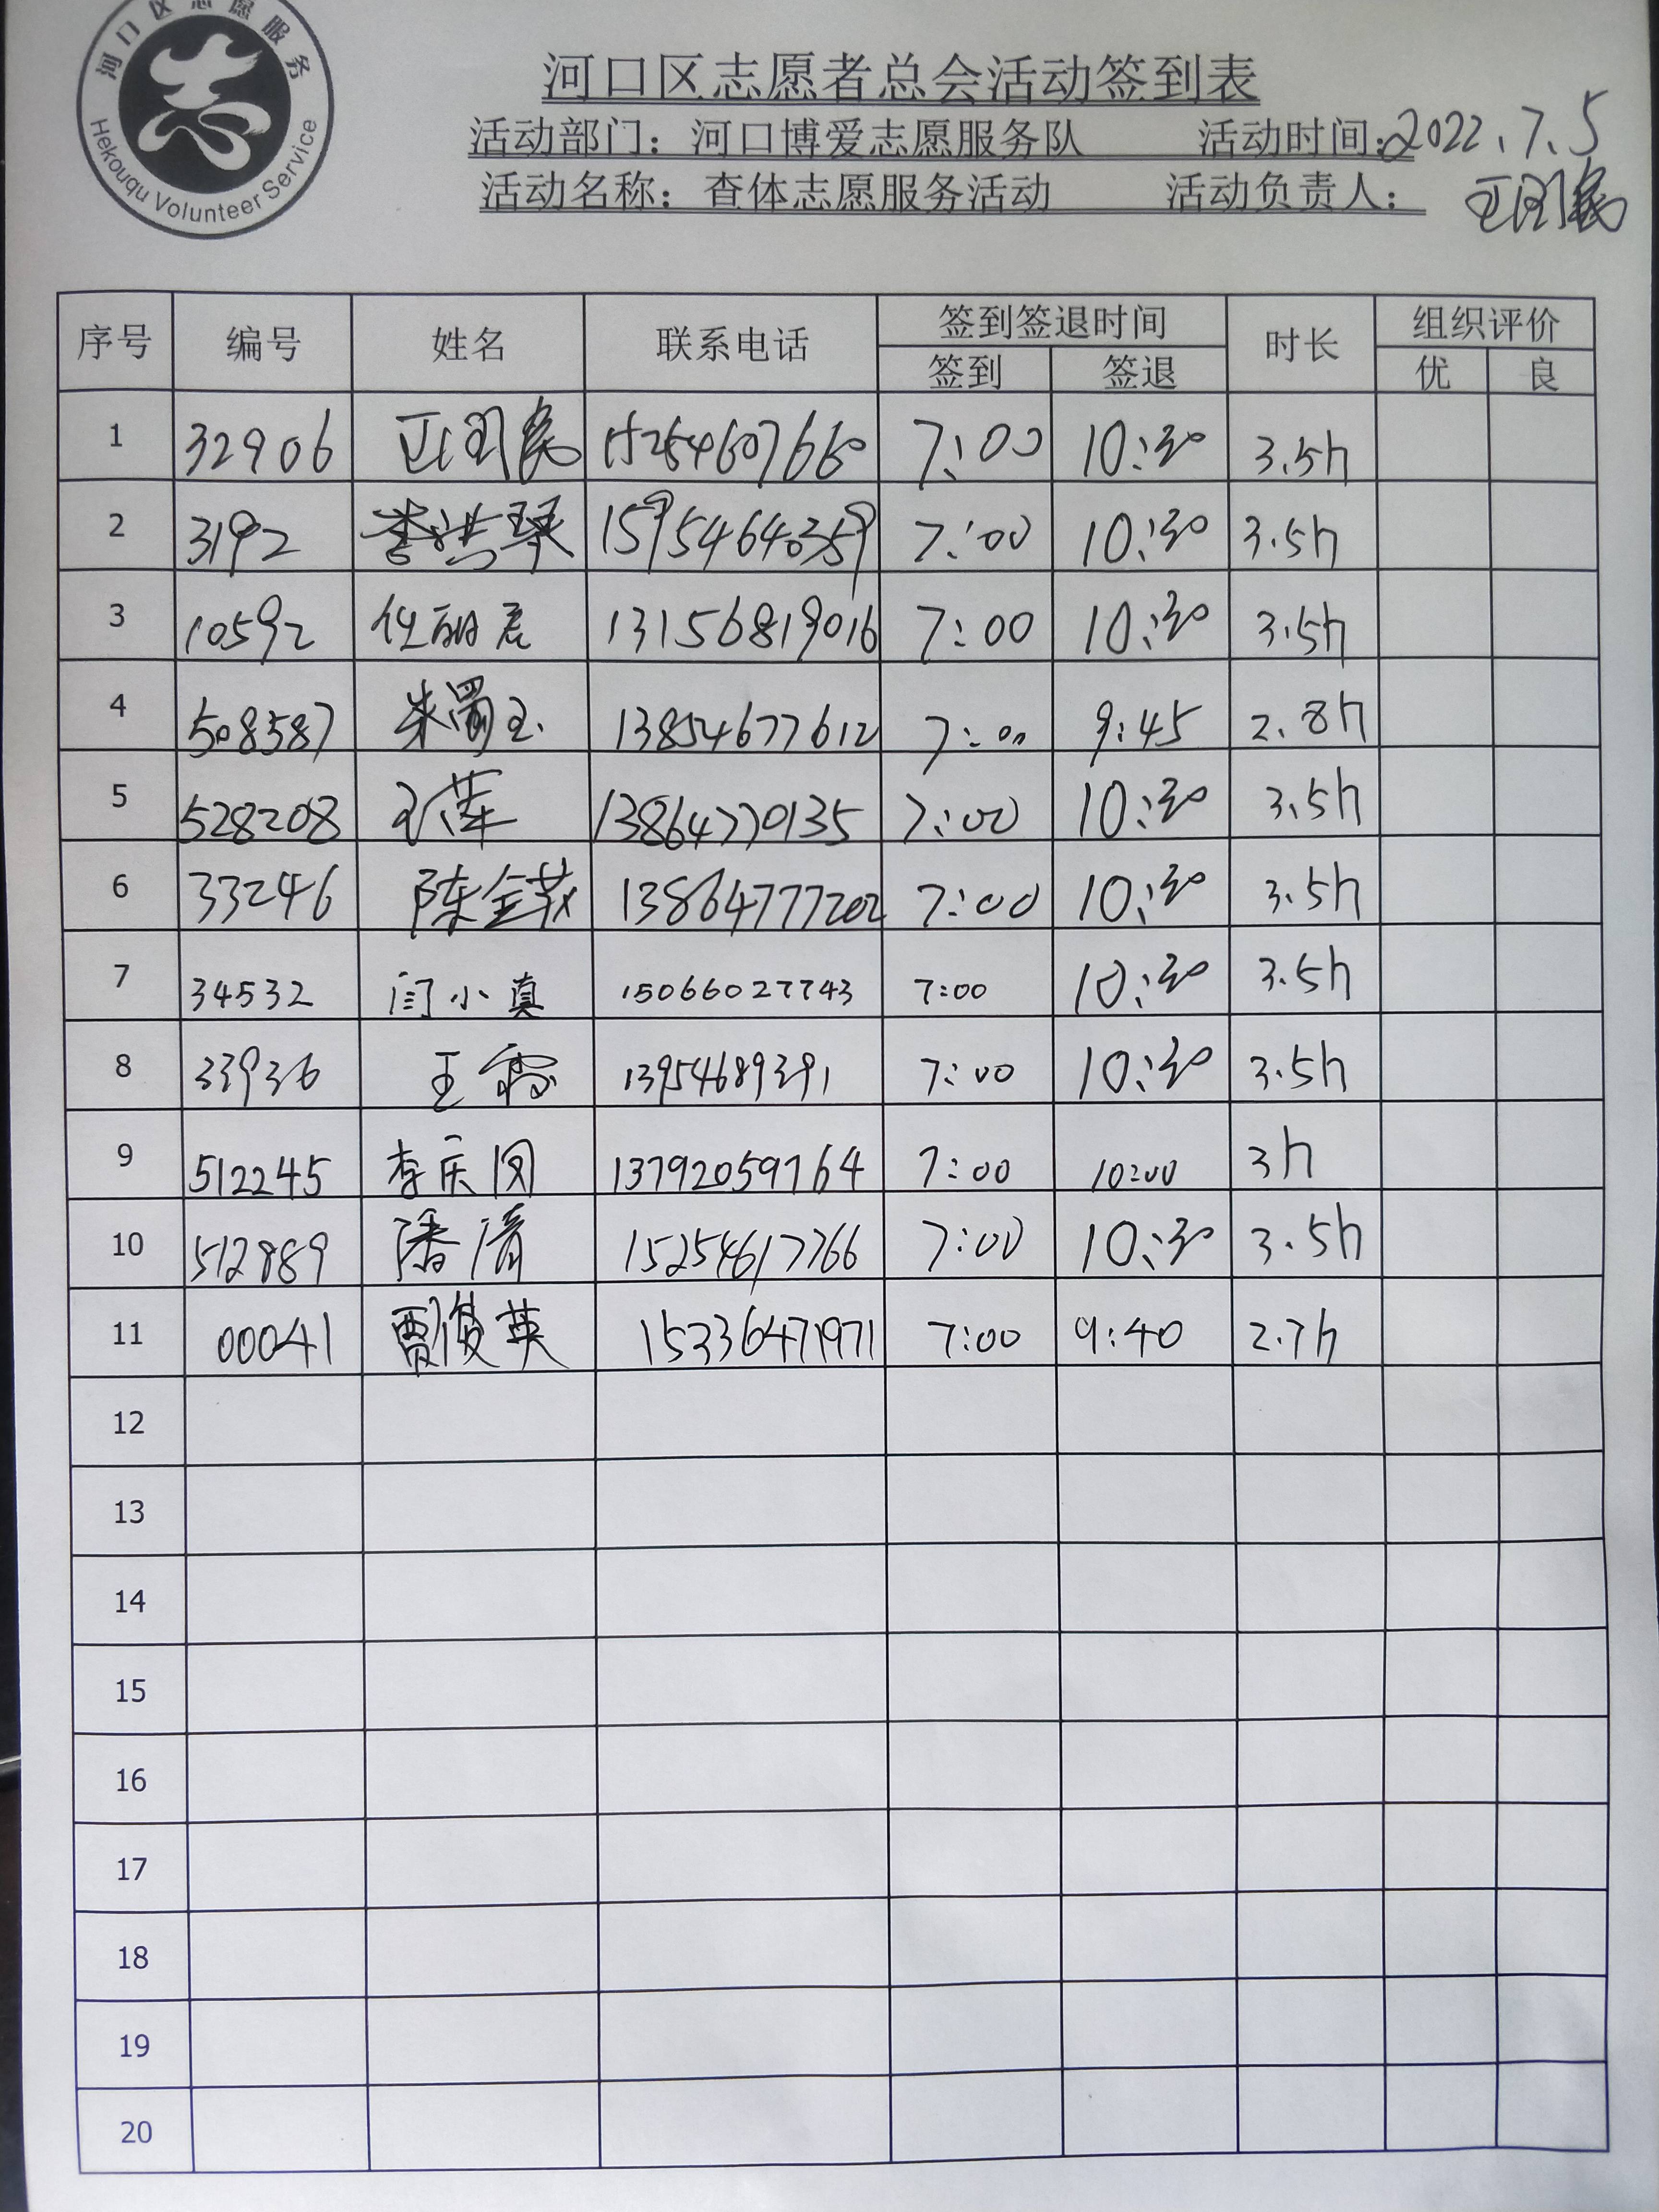 河口区志愿服务
Hekouqu Volunteer Service
河口区志愿者总会活动签到表
活动部门：河口博爱志愿服务队 活动时间：2022.7.5
活动名称：查体志愿服务活动 活动负责人：
序号 编号 姓名 联系电话 签到签退时间 时长 组织评价
签到 签退 优 良
1 32906 15254607660 7:00 10:30 3.5h
2 3192 李洪琴 15954640359 7:00 10:30 3.5h
3 10592 任丽君 13156819016 7:00 10:30 3.5h
4 508587 朱蜀玉 13854677612 7:00 9:45 2.8h
5 528208 王萍 13864770135 7:00 10:30 3.5h
6 33246 陈金 13864777202 7:00 10:30 3.5h
7 34532 闫小真 15066027743 7:00 10:30 3.5h
8 33936 王 13954689391 7:00 10:30 3.5h
9 512245 李庆 13792059764 7:00 10:00 3h
10 512889 潘清 15254617766 7:00 10:30 3.5h
11 00041 贾俊英 15336471971 7:00 9:40 2.7h
12
13
14
15
16
17
18
19
20